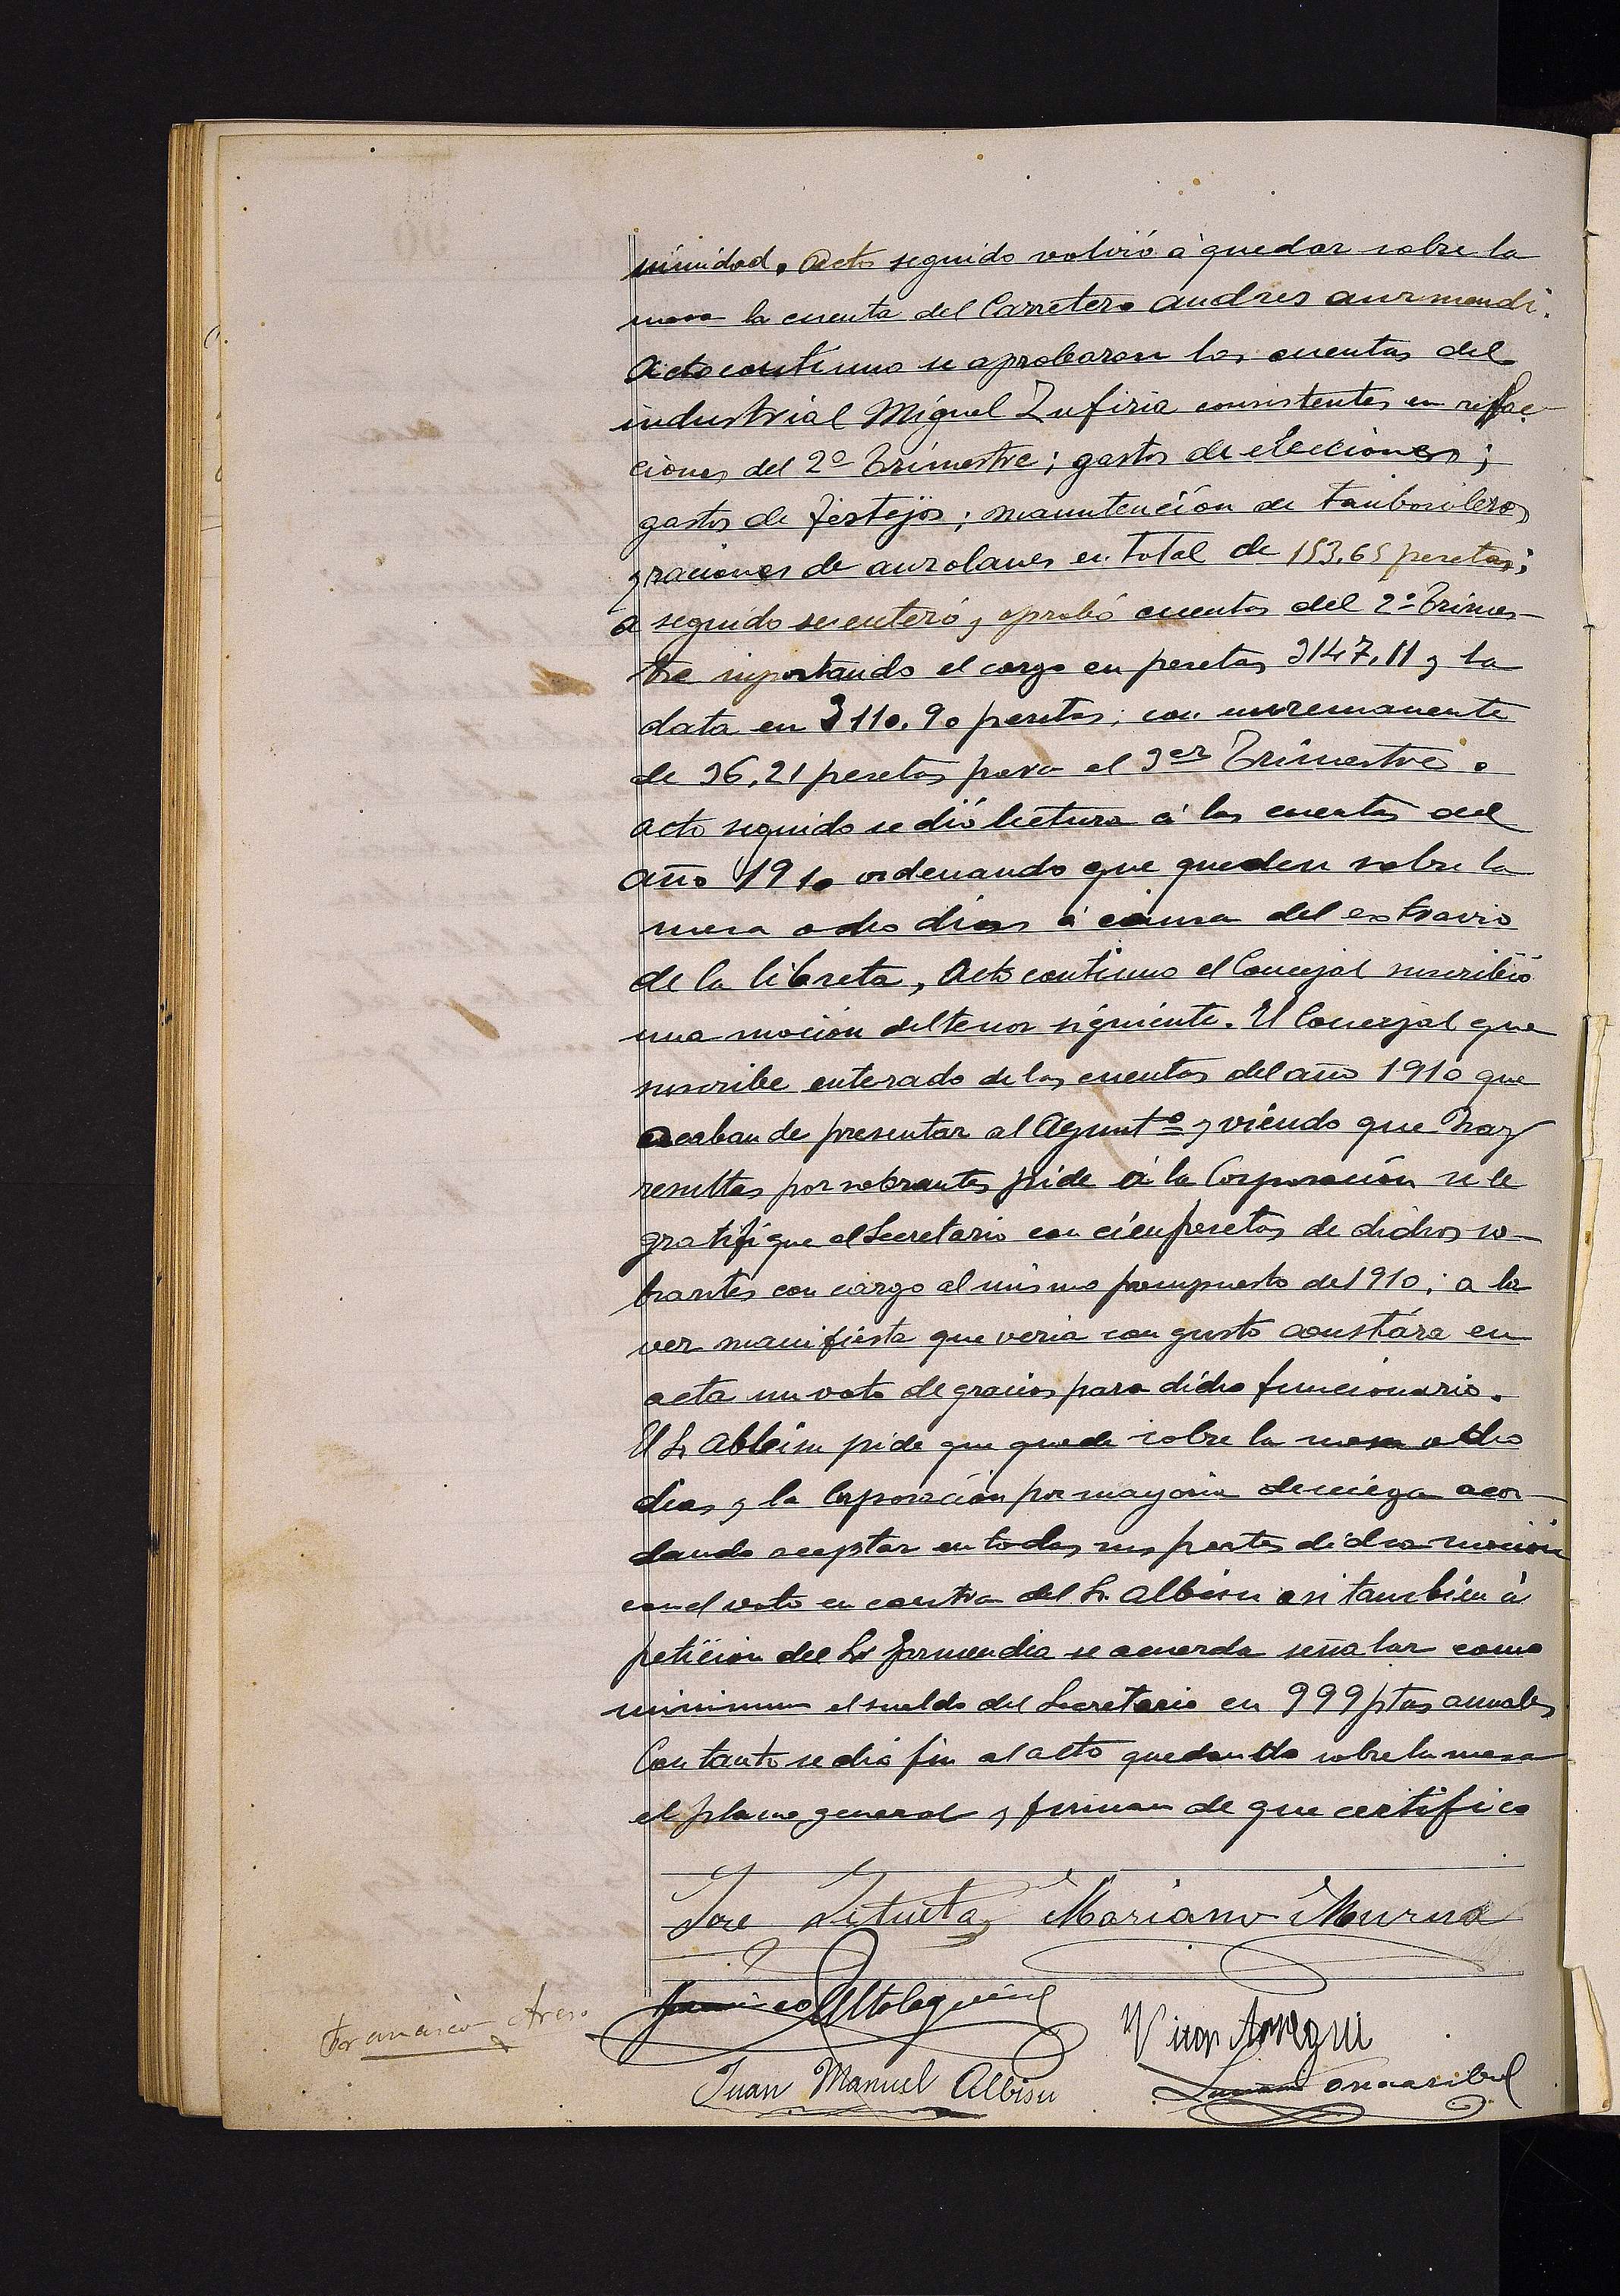 nimidad. Acto seguido volvió á quedar sobre la
mesa la cuenta del Carretero Andres Aurmendi.
Acto contínuo se aprobaron las cuentas del
industrial Miguel Zufiria consistentes en refac-
ciones del 2º Trimestre; gastos de elecciones;
gastos de festejos; manutención de tamborileros
y raciones de aurolanes en total de 153,65 pesetas;
a seguido se enteró y aprobó cuentas del 2º Trimes-
tre importando el cargo en pesetas 3147,11 y la
data en 3110,90 pesetas; con un remanente
de 36,21 pesetas para el 3er Trimestre.
acto seguido se dió lectura á las cuentas del
año 1910 ordenando que queden sobre la
mesa ocho dias á causa del extravio
de la libreta, Acto contínuo el Concejal suscribió
una moción del tenor siguiente. El Concejal que
suscribe enterado de las cuentas del año 1910 que
acaban de presentar al Ayuntº y viendo que hay
resultas por sobrantes pide á la Corporación se le
gratifique al Secretario con cien pesetas de dichos so-
brantes con cargo al mismo presupuesto de 1910; a la
vez manifiesta que veria con gusto constára en
acta un voto de gracias para dicho funcionario.
El Sr Albisu pide que quede sobre la mesa ocho
dias y la Corporación por mayoria deniega acor-
dando aceptar en todas sus partes dicha moción
con el voto en contra del Sr. Albisu asi también á
petición del Sr Garmendia se acuerda señalar como
minimum el sueldo del Secretario en 999 ptas anuales
Con tanto se dió fin al acto quedando sobre la mesa
el plano general y firman de que certifico
José Mariano Murua
Francisco Altolaguirre
Francisco Areso
Juan Manuel Albisu